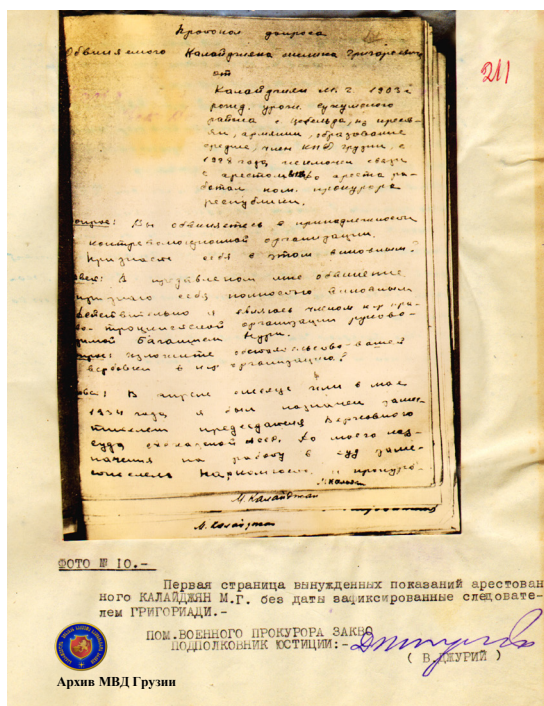 Протокол допроса
Обвиняемого Калайджяна Григоревича
от
Калайджян М. Г. 1903 г
рожд. урож. сухумского
района с. Цебельда, из кресть-
ян, армянин, образование
среднее, член КП(б) Грузии, с
1928 года исключен связи
с арестом, до ареста ра-
ботал пом. прокурора
республики.
211
Вы обвиняетесь в принадлежности
контрреволюционной организации.
Признаете себя в этом виновным?
В мне обвинение
признаю себя полностью виновным
действительно я являюсь членом к-р пра-
во-троцкистской организации руково-
димой Багатшем
изложите обстоятельство вашей
вербовки в к-р организацию?
В апреле месяце или в мае
1934 года я был назначен заме-
стителем председателя Верховного
суда АССР. До моего наз-
начения на работу в суд заме-
стителем Наркомюста и прокуро-
М. Калайджан
М. Калайджан
ФОТО № 10.-
Первая страница вынужденных показаний арестован
ного КАЛАЙДЖЯН М.Г. без даты зафиксированные следовате-
лем ГРИГОРИАДИ.-
ПОМ.ВОЕННОГО ПРОКУРОРА ЗАКВО
ПОДПОЛКОВНИК ЮСТИЦИИ:-
( В.ДЖУРИЙ )
Архив МВД Грузии